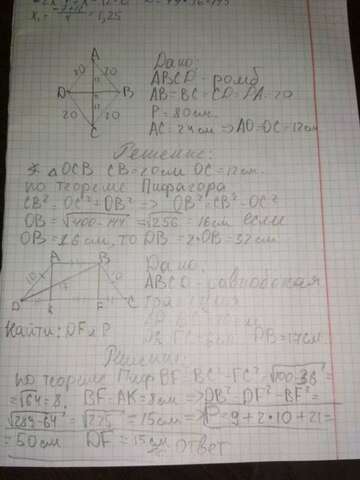 x₁ = = 1,25
A
20 20
D B
20 20
C
Дано:
ABCD - ромб
AB=BC=CD=DA=20
P=80см.
AC=24см ⇒ AO=OC=12см
Решение:
△ OCB CB=20см OC=12см.
по теореме Пифагора
CB²=OC²+OB² ⇒ OB²=CB²-OC²
OB=√400-144=√256=16см если
OB=16см, то DB=2·OB=32см
A B
10 17 10
D K F C
Дано:
ABCD - равнобокая
DB=17см.
Найти: DF и P
Решение:
по теореме Пиф BF=BC²-FC²=√100-36=
=√64=8. BF=AK=8см ⇒ DB²-DF²-BF²=
√289-64=√225=15см ⇒ P=9+2·10+21=
=50см DF=15см
Ответ